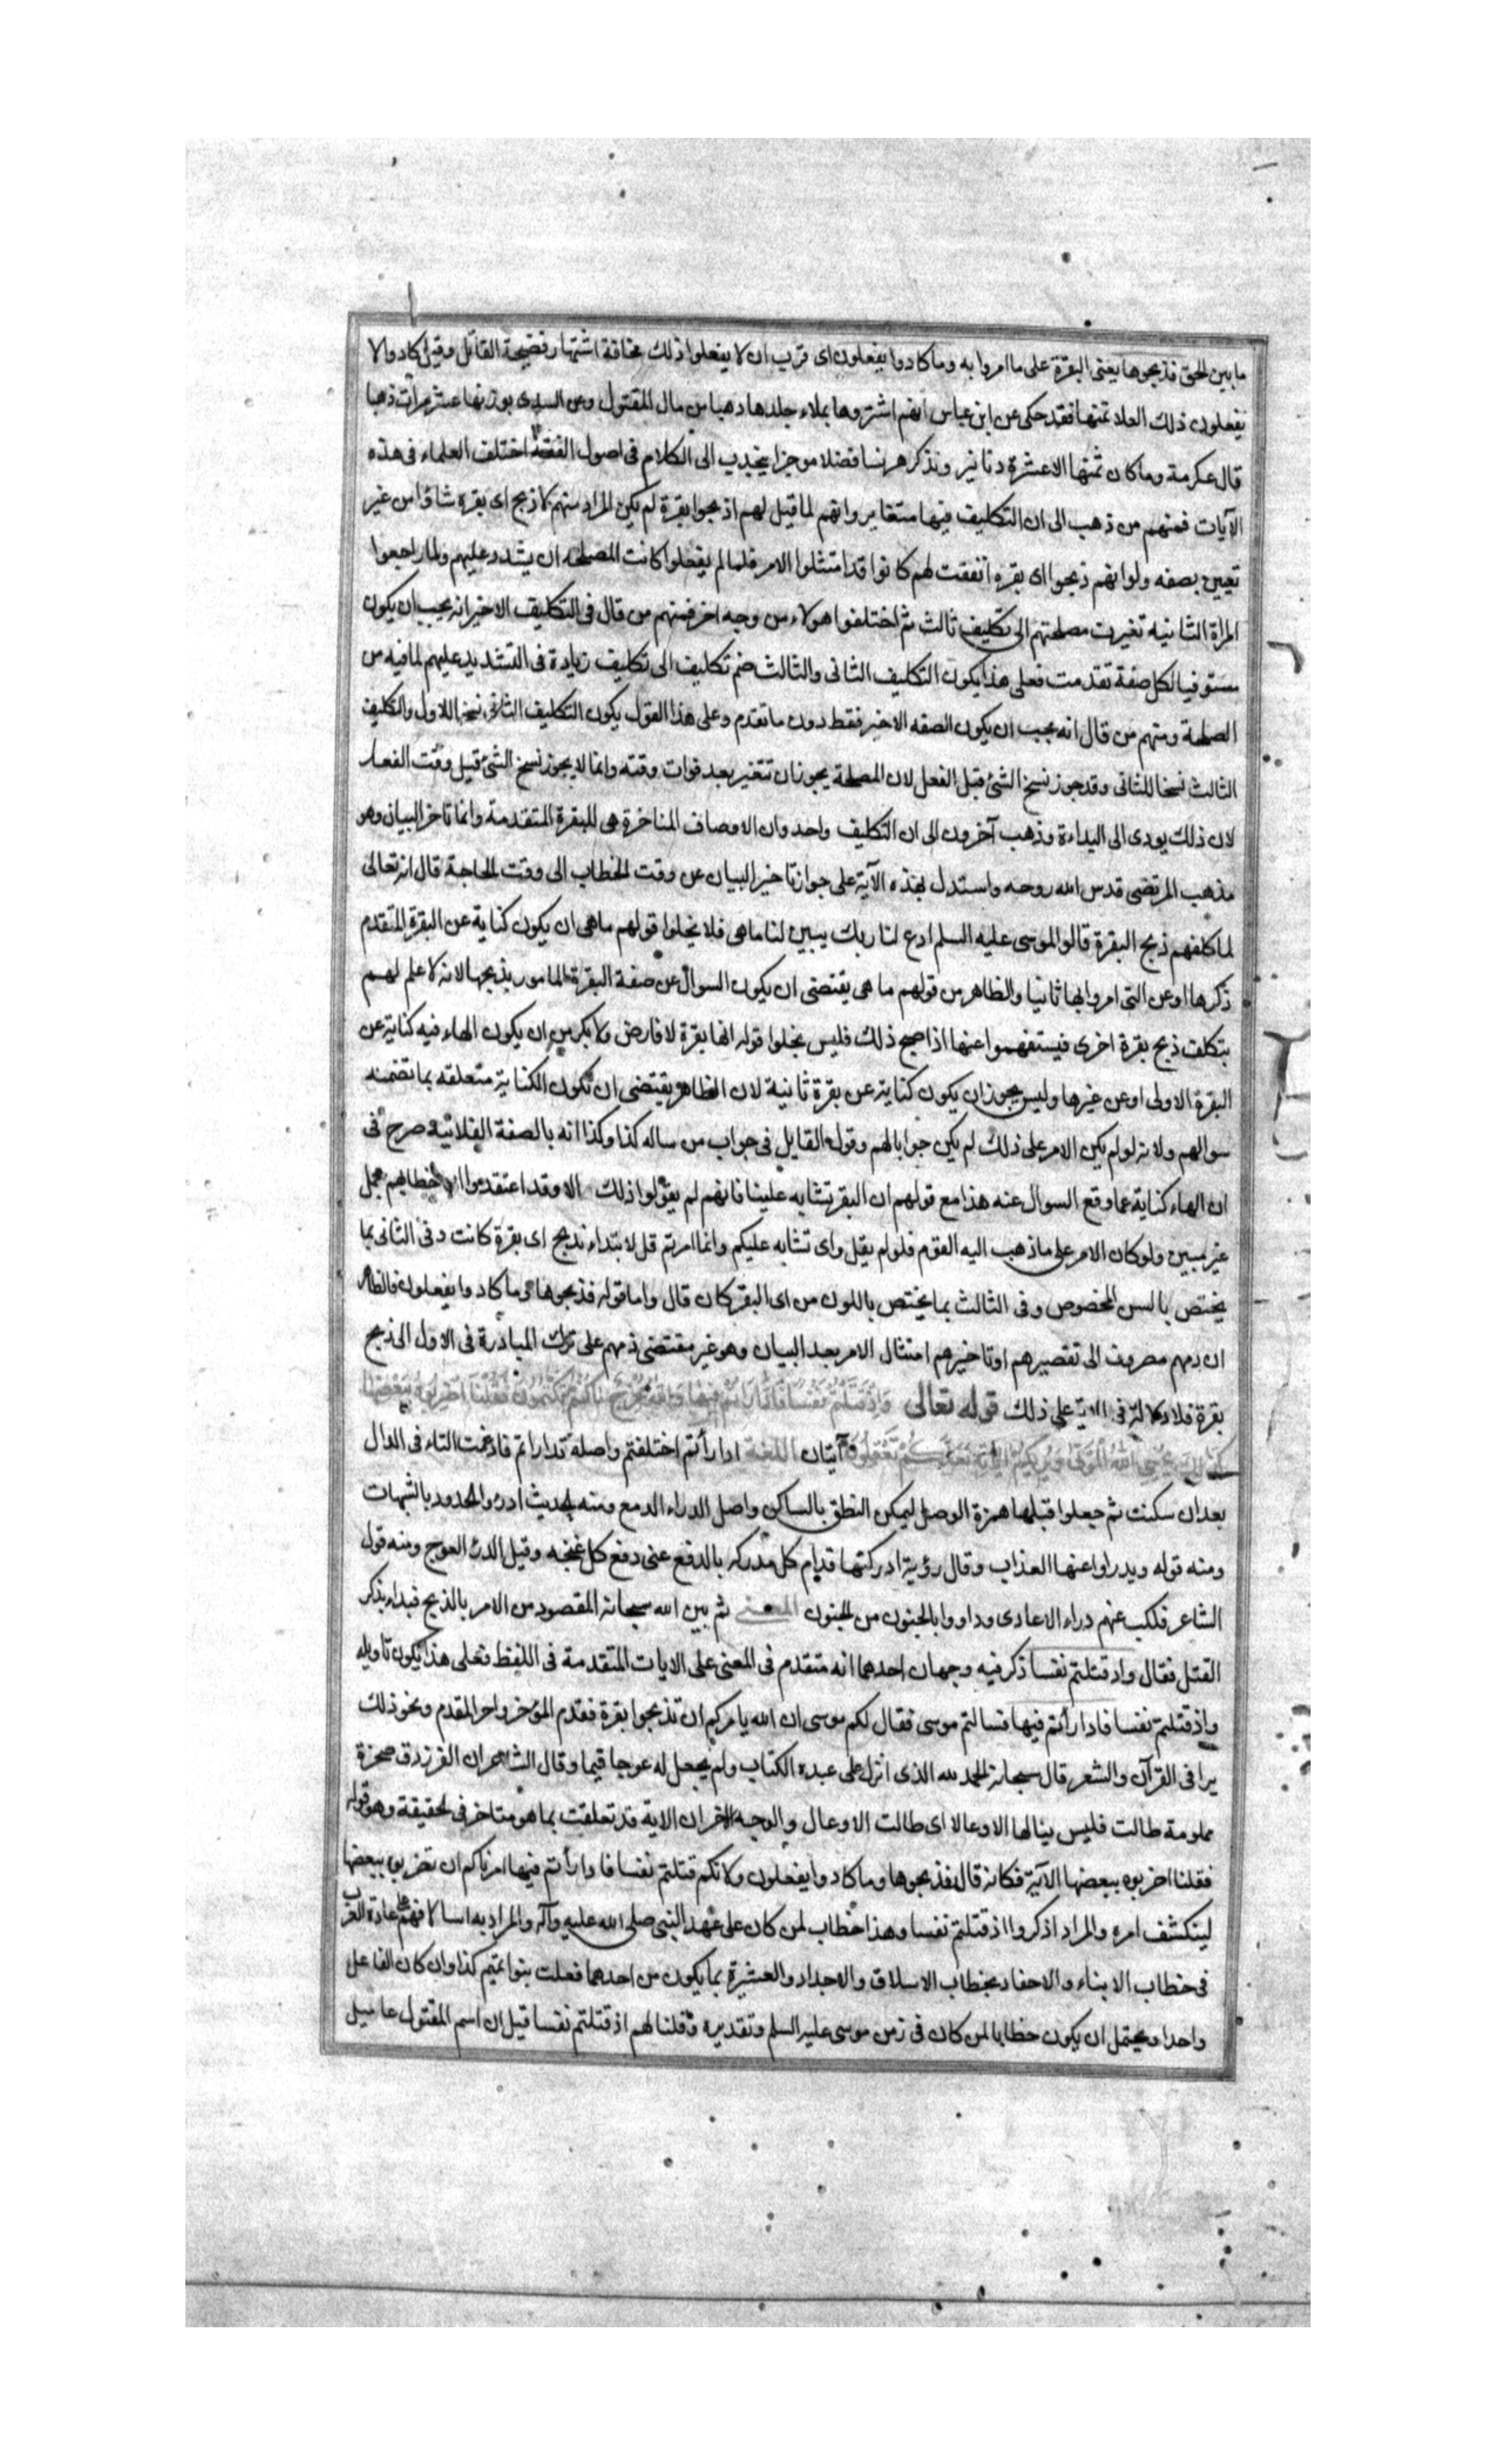 ما بين لحق فذبحوها يعنى البقرة على ما امروا به وما كادوا يفعلون اى قرب ان لا يفعلوا ذلك مخافة اشتهار فضيحة القاتل وقيل كادوا لا
يفعلون ذلك لغلا ثمنها فقد حكى عن ابن عباس انهم اشتروها بملاء جلدها ذهبا من مال المقتول وعن السدى بوزنها عشر مرات ذهبا
قال عكرمة وما كان ثمنها الا عشرة دنانير ونذكر هيهنا فضلا موجزا ينجذب الى الكلام فى اصول الفقه اختلف العلماء فى هذه
الآيات فمنهم من ذهب الى ان التكليف فيها متغاير وانهم لما قيل لهم اذبحوا بقرة لم يكن المراد منهم الا ذبح اى بقرة شاؤا من غير
تعيين بصفه ولو انهم ذبحوا اى بقره اتفقت لهم كانوا قد امتثلوا الامر فلما لم يفعلوا كانت المصلحه ان يشدد عليهم ولما راجعوا
المراة الثانيه تغيرت مصلحتهم الى تكليف ثالث ثم اختلفوا هولاء من وجه اخر فمنهم من قال فى التكليف الاخير انه يجب ان يكون
مستوفيا لكل صفة تقدمت فعلى هذا يكون التكليف الثانى والثالث ضم تكليف الى تكليف زيادة فى التشديد عليهم لما فيه من
الصلحة ومنهم من قال انه يجب ان يكون الصفه الاخير فقط دون ما تقدم وعلى هذا القول يكون التكليف الثانى نسخا للاول والتكليف
الثالث نسخا للثانى وقد جوز نسخ الشئ قبل الفعل لان المصلحة يجوز ان تتغير بعد فوات وقته وانما لا يجوز نسخ الشئ قبل وقت الفعل
لان ذلك يودى الى البداءة وذهب آخرون الى ان التكليف واحد وان الاوصاف المتاخرة هى للبقرة المتقدمة وانما تاخر البيان وهو
مذهب المرتضى قدس الله روحه واستدل بهذه الآية على جواز تاخير البيان عن وقت الخطاب الى وقت الحاجة قال انه تعالى
لما كلفهم ذبح البقرة قالوا لموسى عليه السلم ادع لنا ربك يبين لنا ما هى فلا يخلوا قولهم ما هى ان يكون كناية عن البقرة المتقدم
ذكرها او عن التى امروا بها ثانيا والظاهر من قولهم ما هى يقتضى ان يكون السوال عن صفة البقرة المامور بذبحها لانه لا علم لهم
بتكلف ذبح بقرة اخرى فيستفهموا عنها اذا صح ذلك فليس يخلوا قوله انها بقرة لا فارض ولا بكر من ان يكون الهاء فيه كناية عن
البقرة الاولى او عن غيرها وليس يجوز ان يكون كناية عن بقرة ثانية لان الظاهر يقتضى ان تكون الكناية متعلقه بما تضمنه
سوالهم ولانه لو لم يكن الامر على ذلك لم يكن جوابا لهم وقول القايل فى جواب من ساله كذا وكذا انه بالصفة الفلانية صرح فى
ان الهاء كناية عما وقع السوال عنه هذا مع قولهم ان البقر تشابه علينا فانهم لم يقولوا ذلك الا وقد اعتقدوا ان خطابهم مجمل
غير مبين ولو كان الامر على ما ذهب اليه القوم فلو لم يقل واى تشابه عليكم وانما امرتم قل لابتداء بذبح اى بقرة كانت وفى الثانى بما
يختص بالسن المخصوص وفى الثالث بما يختص باللون من اى البقر كان قال واما قوله فذبحوها وما كادوا يفعلون فالظاهر
ان ذمهم مصروف الى تقصيرهم او تاخيرهم امتثال الامر بعد البيان وهو غير مقتضى ذمهم على ترك المبادرة فى الاول الى ذبح
بقرة فلا دلالة فى الاية على ذلك قوله تعالى وَاِذْ قَتَلْتُمْ نَفْسًا فَادَّارَأْتُمْ فِيهَا وَاللهُ مُخْرِجٌ مَا كُنْتُمْ تَكْتُمُونَ فَقُلْنَا اضْرِبُوهُ بِبَعْضِهَا
كَذٰلِكَ يُحْيِى اللهُ الْمَوْتٰى وَيُرِيكُمْ اٰيَاتِهِ لَعَلَّكُمْ تَعْقِلُونَ آيتان اللغة ادارأتم اختلفتم واصله تداراتم فادغمت التاء فى الدال
بعد ان سكنت ثم جعلوا قبلها همزة الوصل ليمكن النطق بالساكن واصل الدراء الدمع ومنه لحديث ادرؤ الحدود بالشبهات
ومنه قوله ويدراو اعنها العذاب وقال رؤبة ادركتها قدام كل مدركه بالدفع عنى دفع كل غنجه وقيل الدرء العوج ومنه قول
الشاعر فلكب عنهم دراء الاعادى وداووا بالجنون من لجنون المعنى ثم بين الله سبحانه المقصود من الامر بالذبح فبداء بذكر
القتل فقال واذ قتلتم نفسا ذكر فيه وجهان احدهما انه متقدم فى المعنى على الايات المتقدمة فى اللفظ فعلى هذا يكون تاويله
واذ قتلتم نفسا فادارأتم فيها فسالتم موسى فقال لكم موسى ان الله يامركم ان تذبحوا بقرة فقدم المؤخر واخر المقدم ونحو ذلك
يرا فى القرآن والشعر قال سبحانه الحمد لله الذى انزل على عبده الكتاب ولم يجعل له عوجا قيما وقال الشاعر ان الفرزدق صخرة
ملومة طالت فليس ينالها الاوعالا اى طالت الاوعال والوجه الاخر ان الاية قد تعلقت بما هو متاخر فى لحقيقة وهو قوله
فقلنا اضربوه ببعضها الآية فكانه قال فذبحوها وما كادوا يفعلون ولانكم قتلتم نفسا فادارأتم فيها امرناكم ان تضربوه ببعضها
لينكشف امره والمراد اذكروا اذ قتلتم نفسا وهذا خطاب لمن كان على عهد النبى صلى الله عليه وآله والمراد به اسلافهم على عادة العرب
فى خطاب الابناء والاحفاد بخطاب الاسلاف والاجداد والعشيرة بما يكون من احدهما فعلت بنوا تميم كذا وان كان الفاعل
واحدا ويحتمل ان يكون خطابا لمن كان فى زمن موسى عليه السلم وتقديره وقلنا لهم اذ قتلتم نفسا قيل ان اسم المقتول عاميل